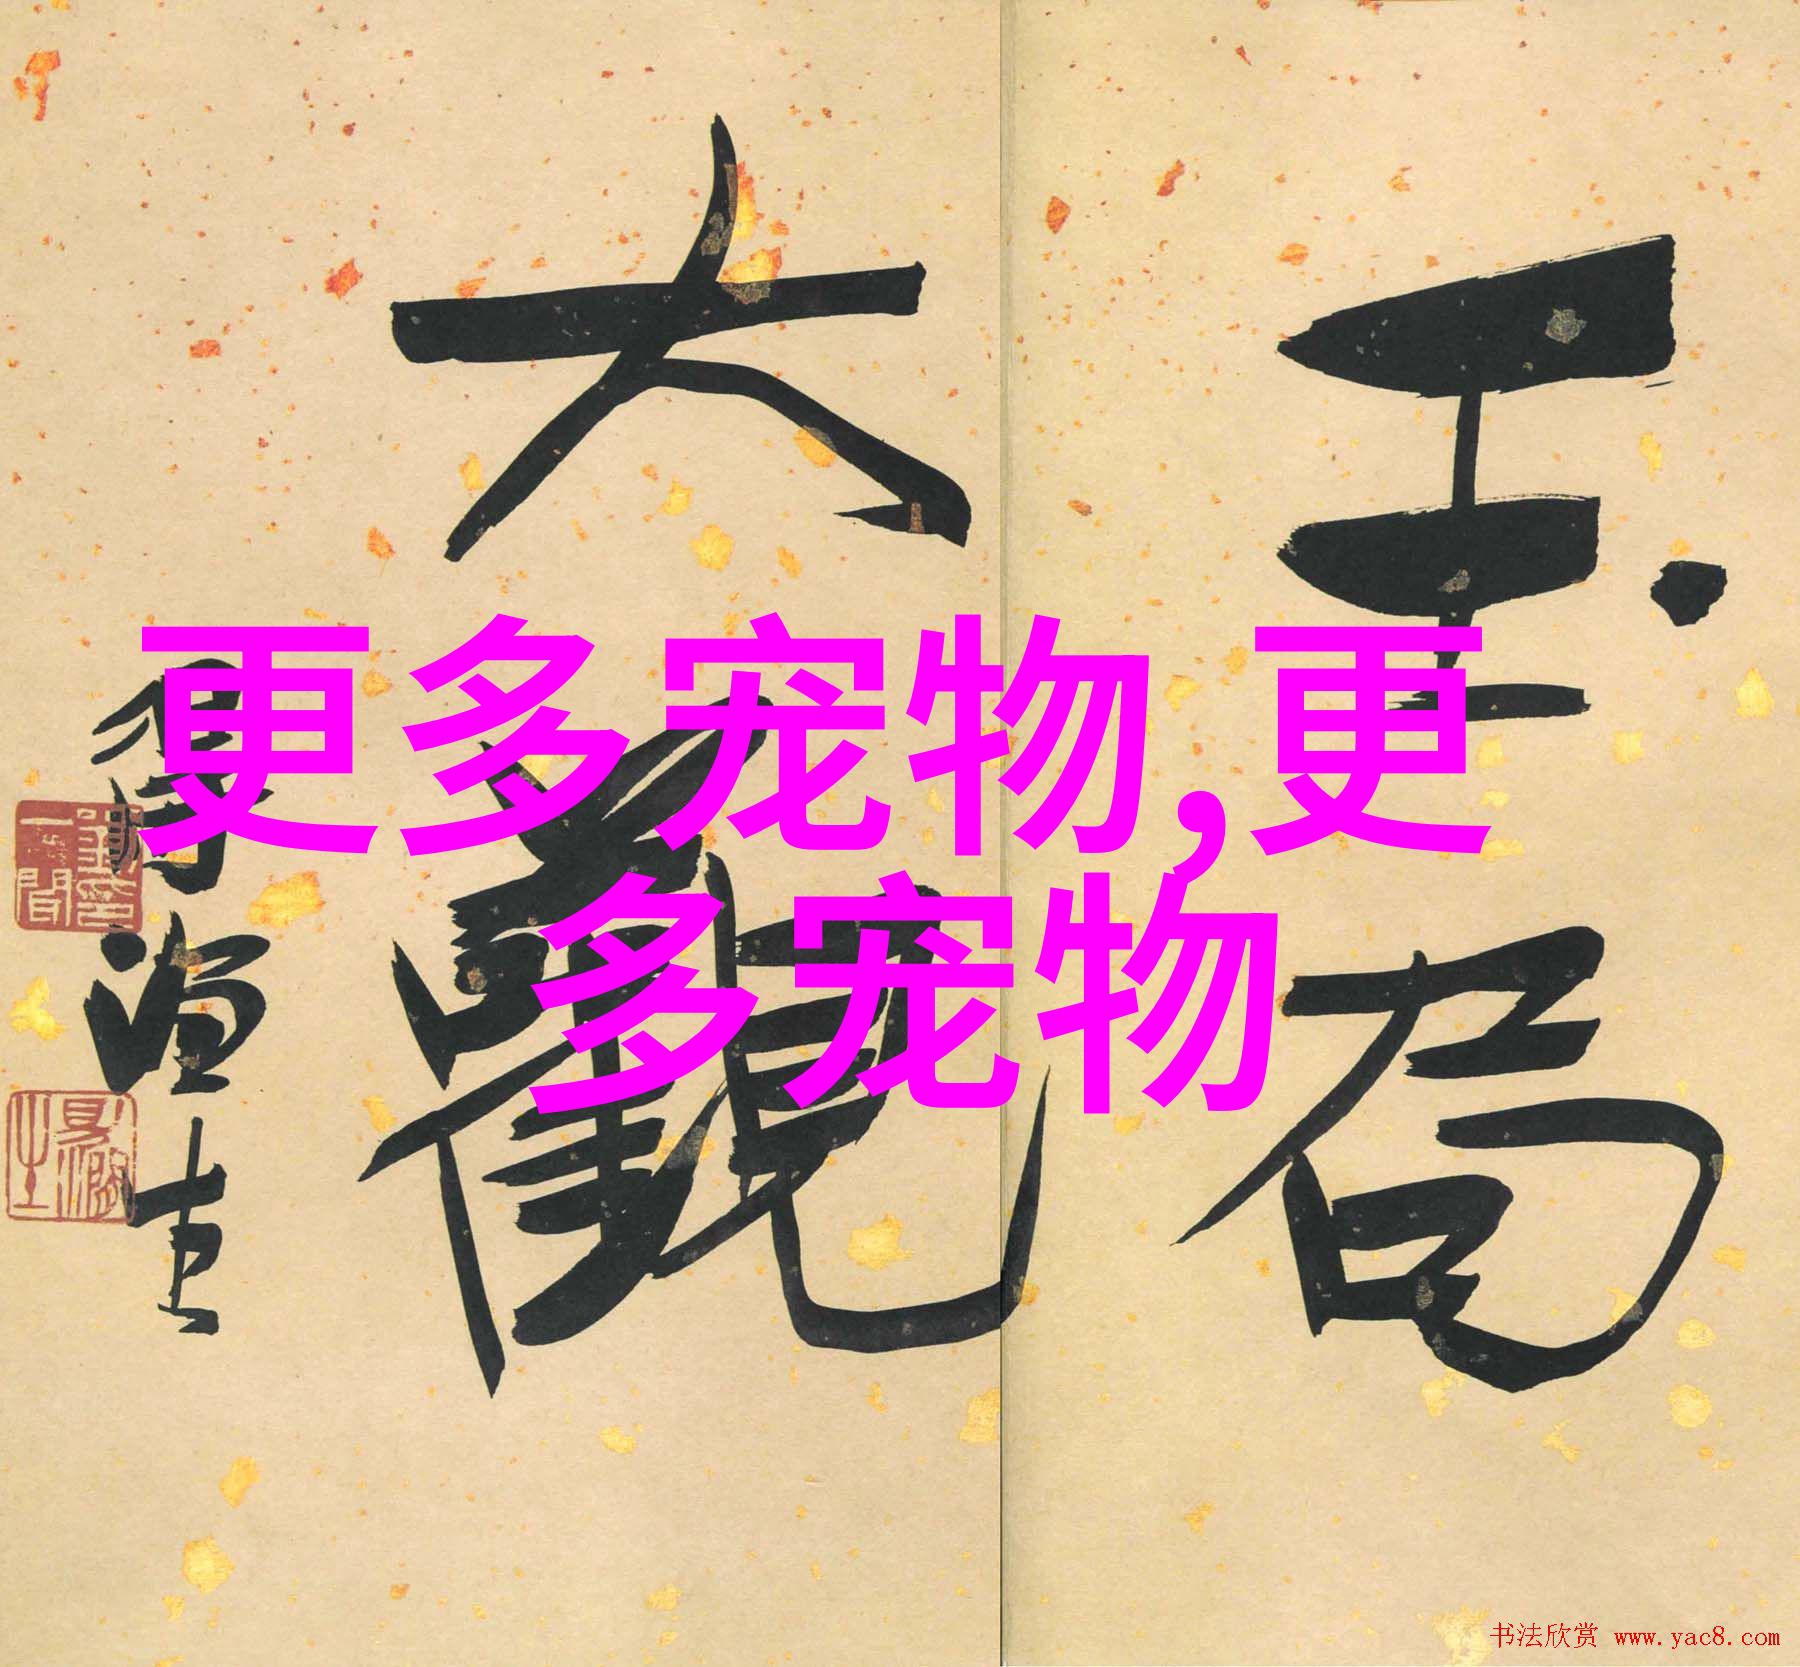 更多宠物,更
多宠物
玉局
大觀
书法欣赏 www.yac8.com